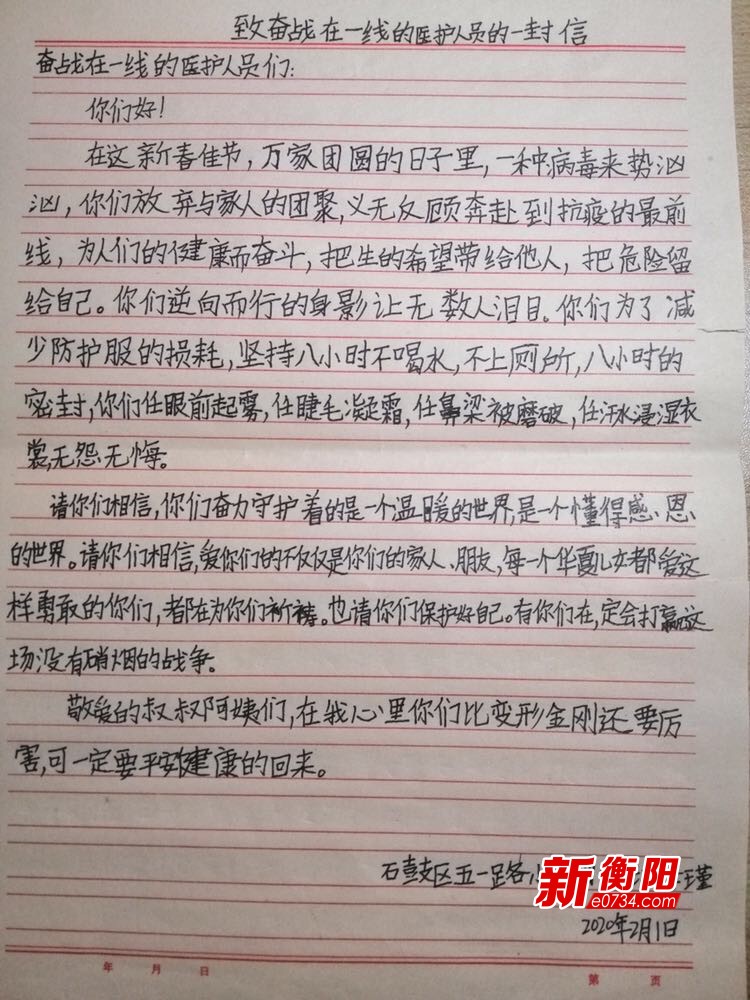 致奋战在一线的医护人员的一封信
奋战在一线的医护人员们:
你们好!
在这新春佳节,万家团圆的日子里,一种病毒来势汹
汹,你们放弃与家人的团聚,义无反顾奔赴到抗疫的最前
线,为人们的健康而奋斗,把生的希望带给他人,把危险留
给自己。你们逆向而行的身影让无数人泪目。你们为了减
少防护服的损耗,坚持八小时不喝水,不上厕所,八小时的
密封,你们任眼前起雾,任睫毛凝霜,任鼻梁被磨破,任汗水浸湿衣
裳,无怨无悔。
请你们相信,你们奋力守护着的是一个温暖的世界,是一个懂得感恩
的世界。请你们相信,爱你们的不仅仅是你们的家人、朋友,每一个华夏儿女都爱这
样勇敢的你们,都在为你们祈祷。也请你们保护好自己。有你们在,定会打赢这
场没有硝烟的战争。
敬爱的叔叔阿姨们,在我心里你们比变形金刚还要厉
害,可一定要平安健康的回来。
石鼓区五一路小
瑾
新衡阳
e0734.com
2020年2月1日
年 月 日
第 页